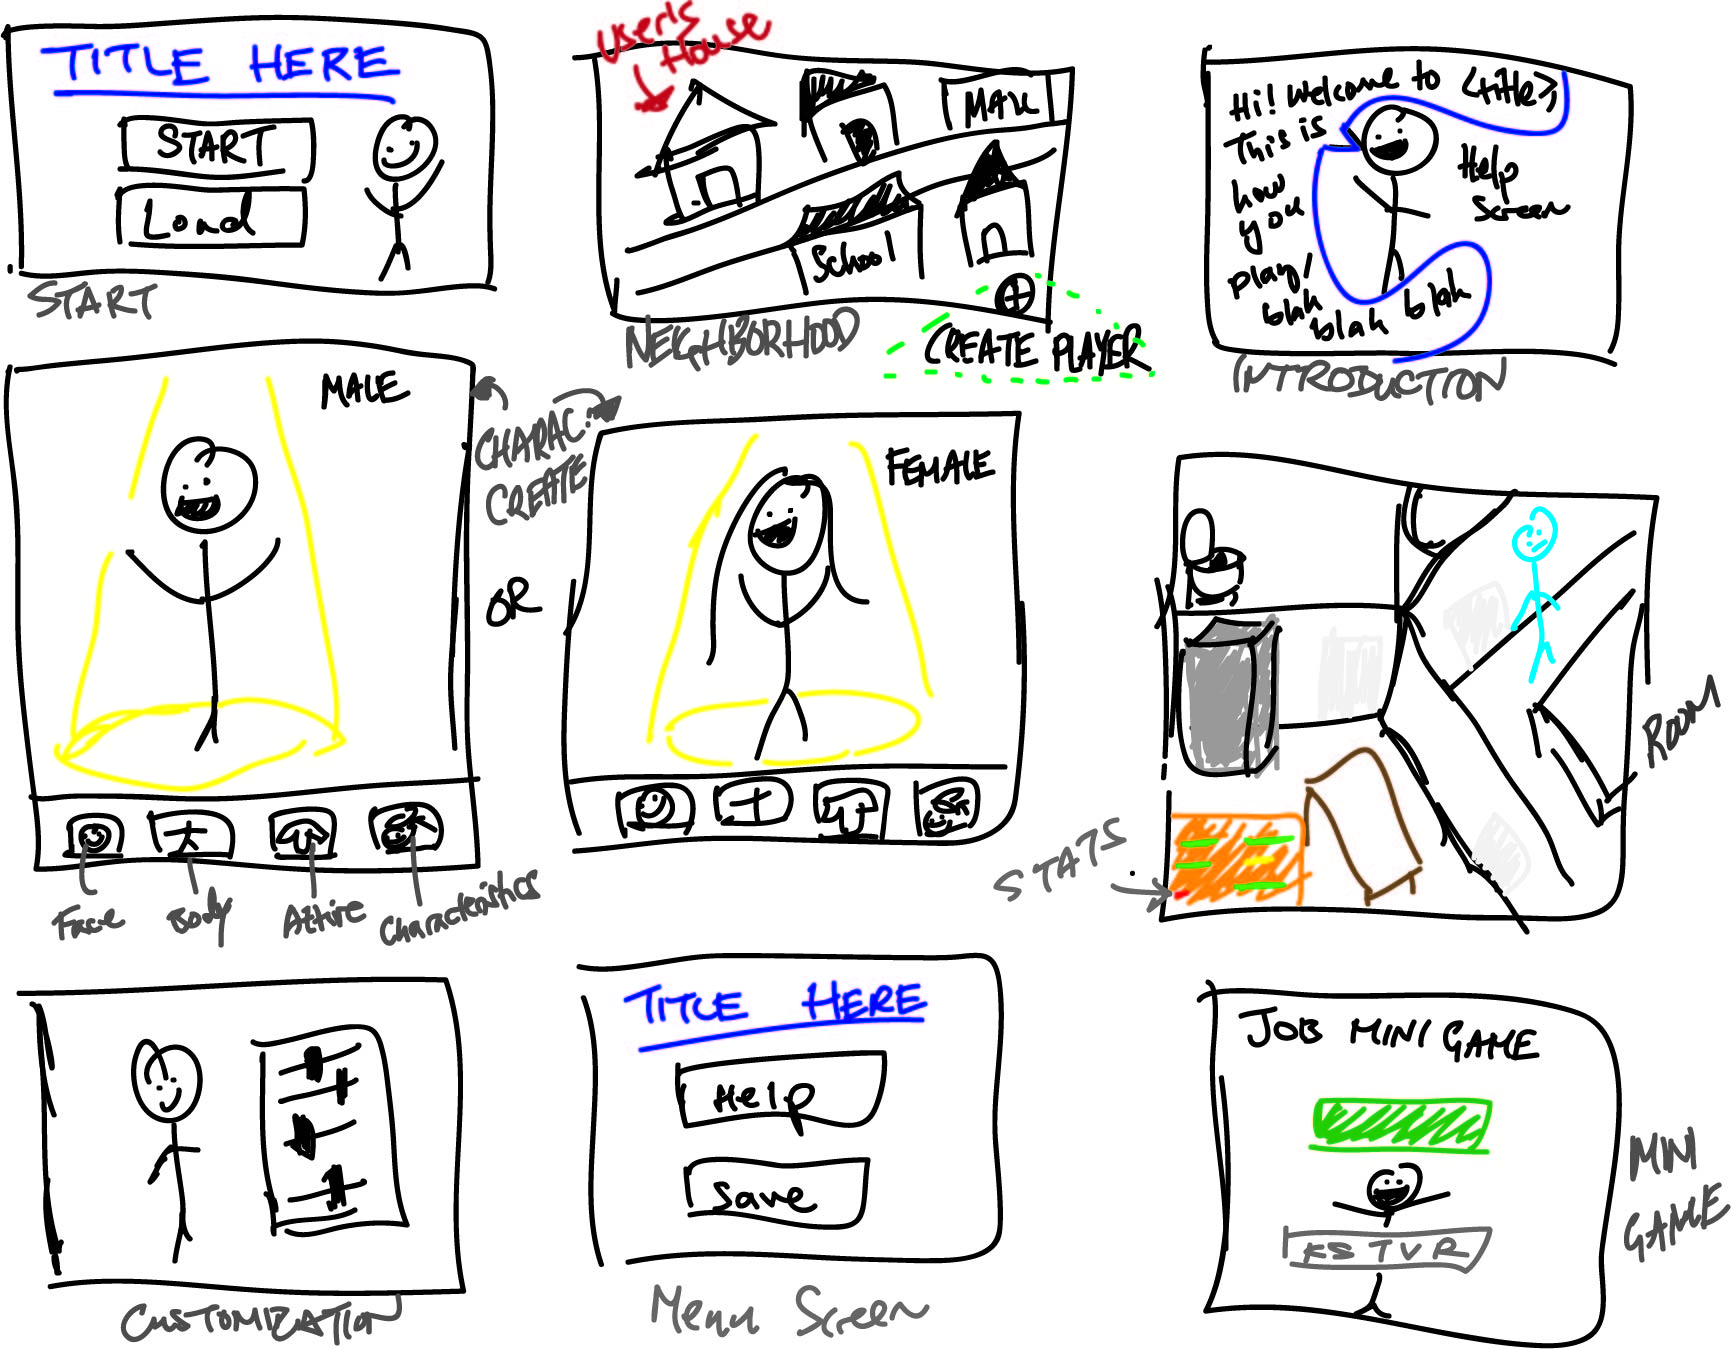 TITLE HERE
START
Load
START
User's
House
MALL
School
NEIGHBORHOOD
CREATE PLAYER
Hi! Welcome to <title>,
This is
how
you
play!
blah
blah
blah
Help
Screen
INTRODUCTION
MALE
CHARAC.
CREATE
OR
FEMALE
Face
Body
Attire
Characteristics
ROOM
STATS
CUSTOMIZATION
TITLE HERE
Help
Save
Menu Screen
JOB MINI GAME
MINI
GAME